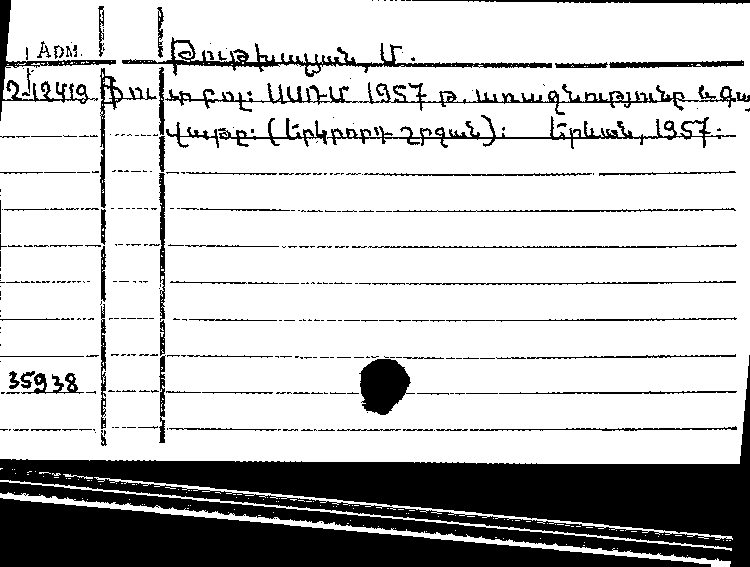 Арм.
Թութխալյան, Մ.
2-12419 Ֆուտբոլ: ՍՍՌՄ 1957 թ. առաջնությունը և գա
վաթը: (Երկրորդ շրջան): Երևան, 1957:
35938